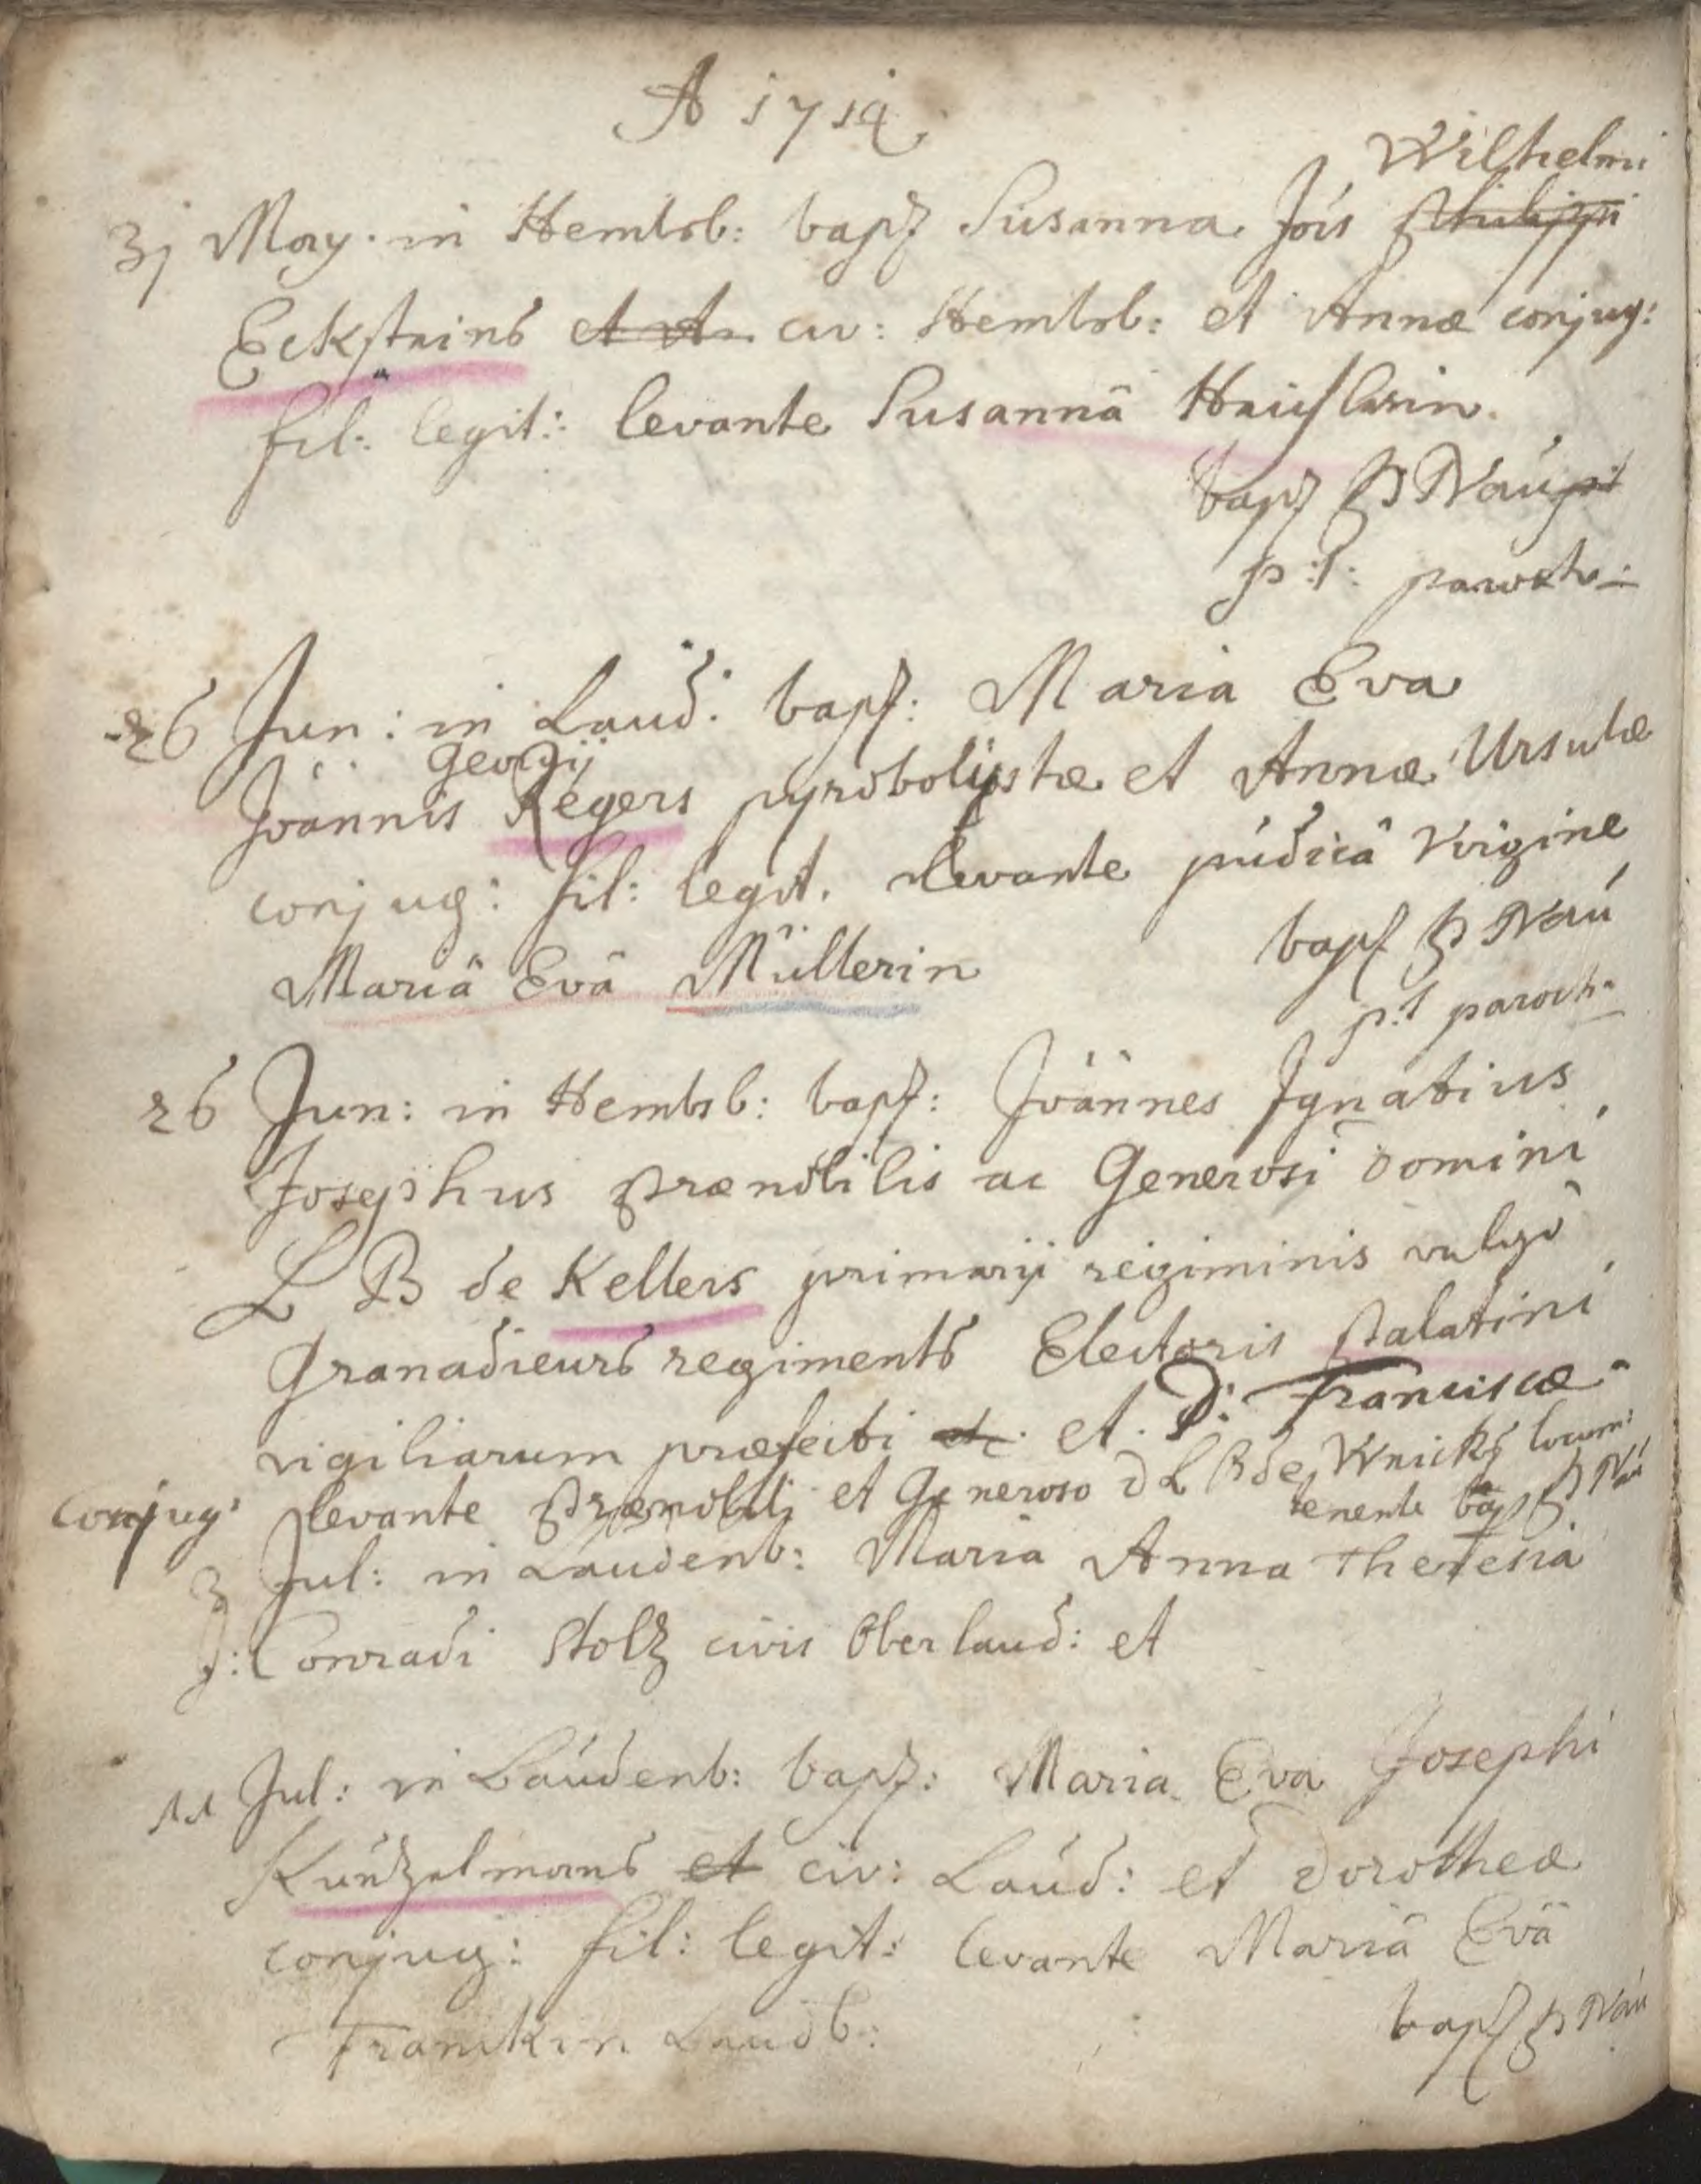 A 1714
Wilhelmi
31 May. in Hembsb: bapt Susanna Jois Philippi
Ecksteins et A. civ: Hembsb: et Annæ conjug:
fil: legit: levante Susannâ
bapt P Nau
p:t: paroch:
26 Jun: in Laud: bapt: Maria Eva
Georgij
Joannis Regers pyrobolistæ et Annæ Ursulæ
conjug: fil: legit. levante pudicâ Virgine
Mariâ Evâ Müllerin bapt P Nau
p:t paroch:
26 Jun: in Hembsb: bapt: Joannes Ignatius
Josephus Prænobilis ac Generosi Domini
L B de Kellers primarij regiminis vulgo
Granadieurs regiments Electoris Palatini
vigiliarum præfecti etc. et D: Franciscæ
conjug: levante Prænobili et Generoso D L B de locum
tenente bapt P Nau
3 Jul: in Laudenb: Maria Anna Theresia
J: Conradi Stolz civis Oberlaud: et
11 Jul: in Laudenb: bapt: Maria Eva Josephi
Kunzelmans et civ: Laud: et Dorotheæ
conjug: fil: legit: levante Mariâ Evâ
Franckin Laudb: bapt P Nau